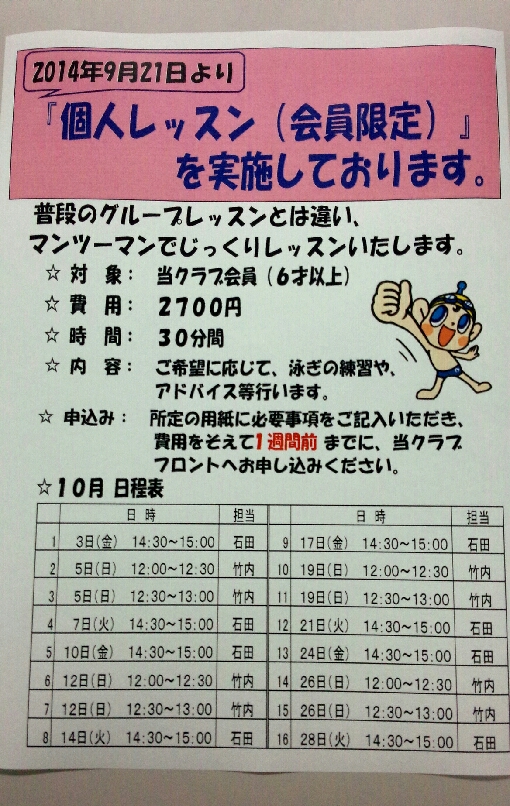 2014年9月21日より
『個人レッスン（会員限定）』
を実施しております。
普段のグループレッスンとは違い、
マンツーマンでじっくりレッスンいたします。
☆ 対　象： 当クラブ会員（6才以上）
☆ 費　用： 2700円
☆ 時　間： 30分間
☆ 内　容： ご希望に応じて、泳ぎの練習や、
アドバイス等行います。
☆ 申込み： 所定の用紙に必要事項をご記入いただき、
費用をそえて1週間前 までに、当クラブ
フロントへお申し込みください。
☆10月 日程表
日 時 担当 日 時 担当
1 3日(金) 14:30～15:00 石田 9 17日(金) 14:30～15:00 石田
2 5日(日) 12:00～12:30 竹内 10 19日(日) 12:00～12:30 竹内
3 5日(日) 12:30～13:00 竹内 11 19日(日) 12:30～13:00 竹内
4 7日(火) 14:30～15:00 石田 12 21日(火) 14:30～15:00 石田
5 10日(金) 14:30～15:00 石田 13 24日(金) 14:30～15:00 石田
6 12日(日) 12:00～12:30 竹内 14 26日(日) 12:00～12:30 竹内
7 12日(日) 12:30～13:00 竹内 15 26日(日) 12:30～13:00 竹内
8 14日(火) 14:30～15:00 石田 16 28日(火) 14:30～15:00 石田